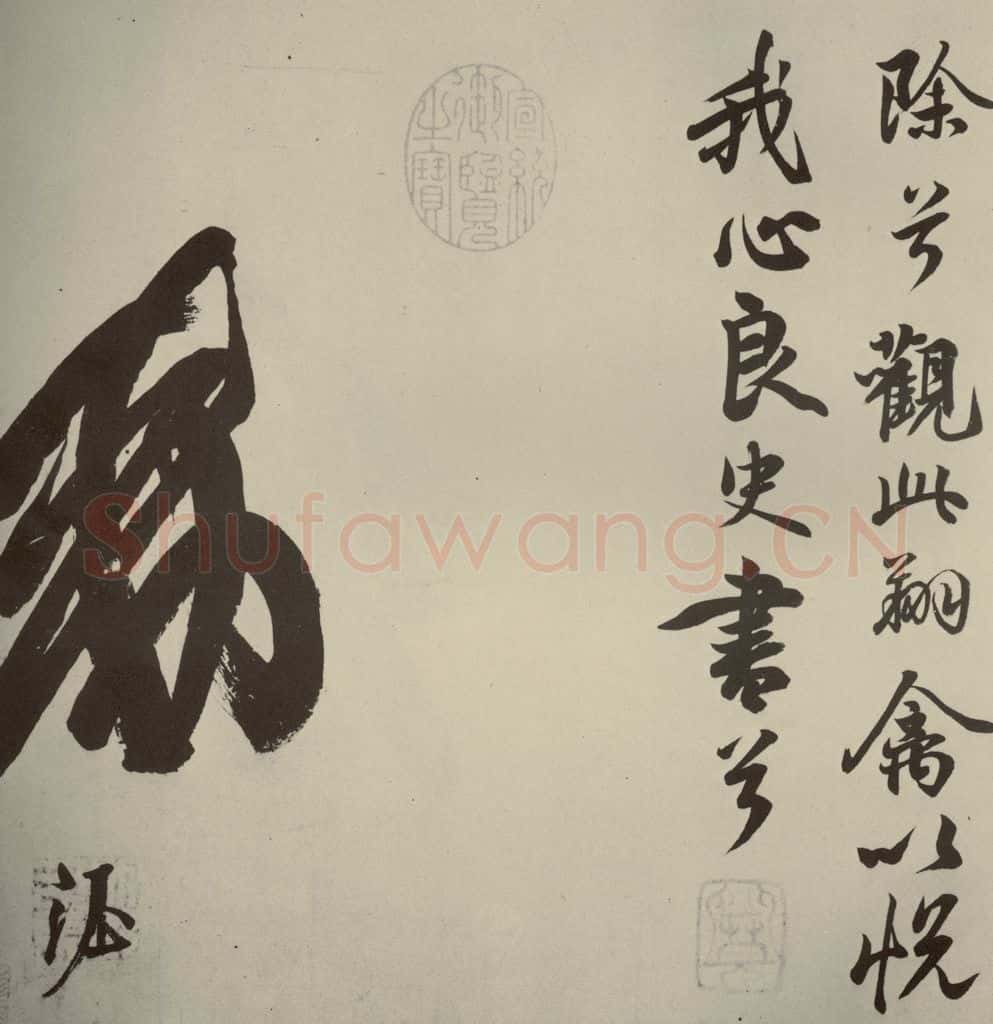 除兮觀此翔禽以悦
我心良史書兮
宣統御覽之寶
Shufawang.CN